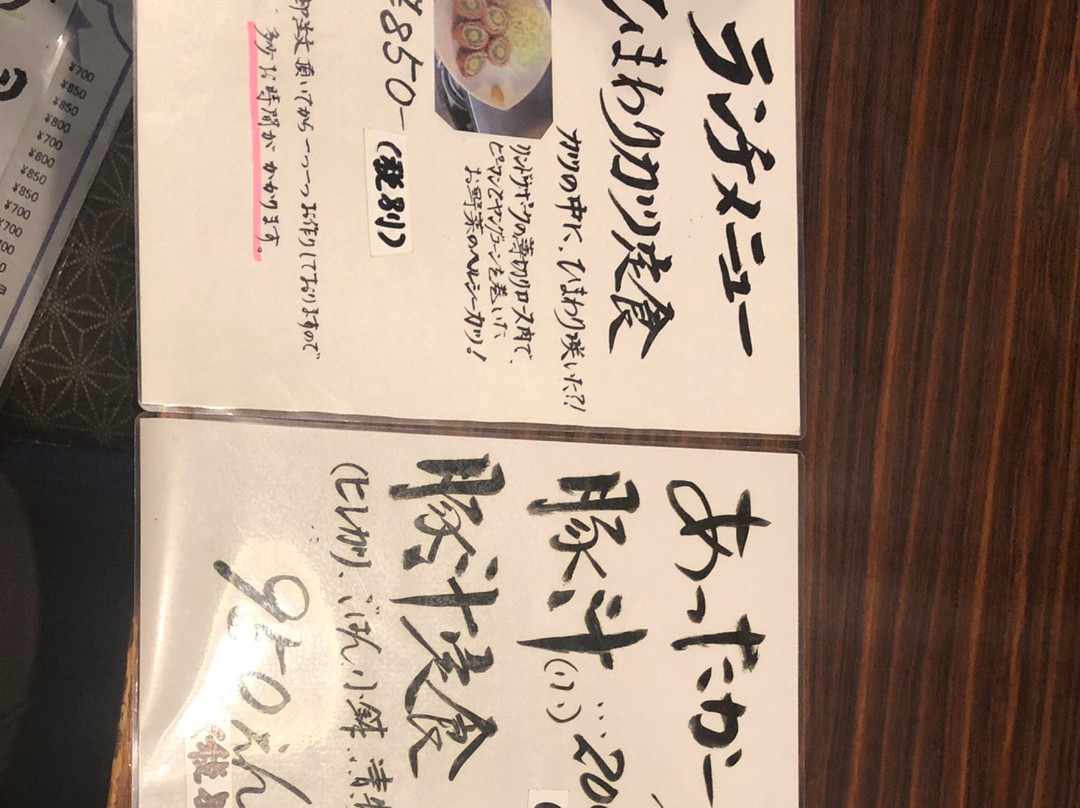 ランチメニュー
ひまわりカツ定食
カツの中に、ひまわり咲いた?!
の薄切りロース肉で、
ピーマンとヤングコーンを巻いた
お野菜のヘルシーカツ!
¥850-
(税別)
頂いてから一つ一つお作りしておりますので
お時間がかかります。
あったか
豚汁(小)…20
豚汁定食
(ヒレカツ、ごはん、小鉢、漬
950
税
¥700
¥850
¥850
¥800
¥700
¥800
¥850
¥850
¥700
¥700